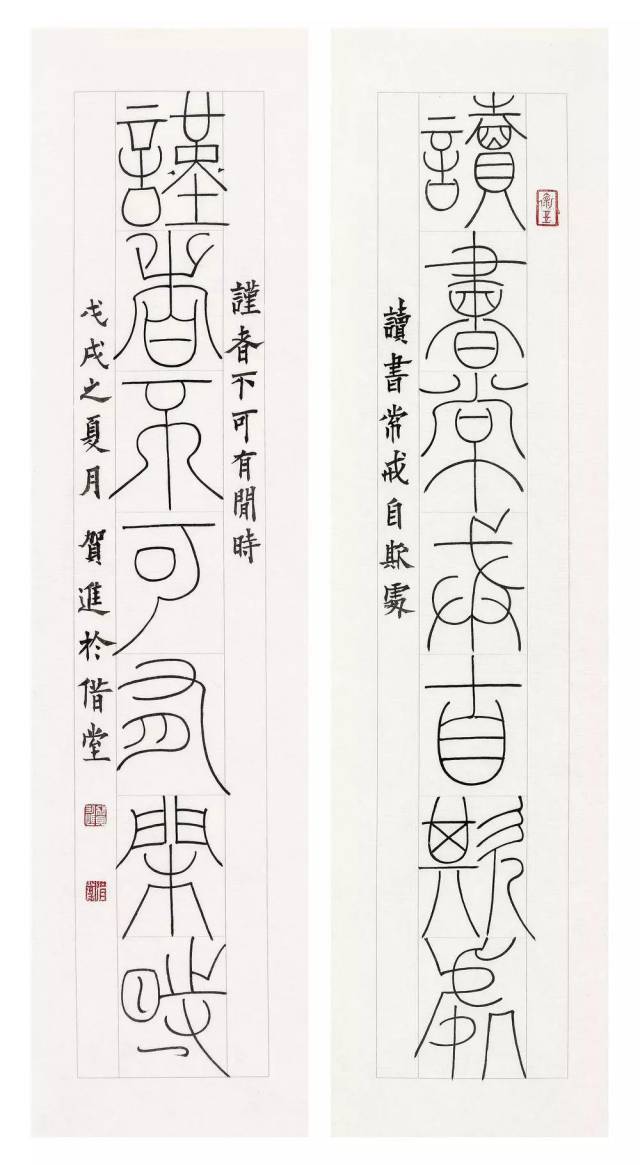 讀書常戒自欺處
讀書常戒自欺處
謹昚不可有閒時
謹昚不可有閒時
戊戌之夏月 賀進於借堂